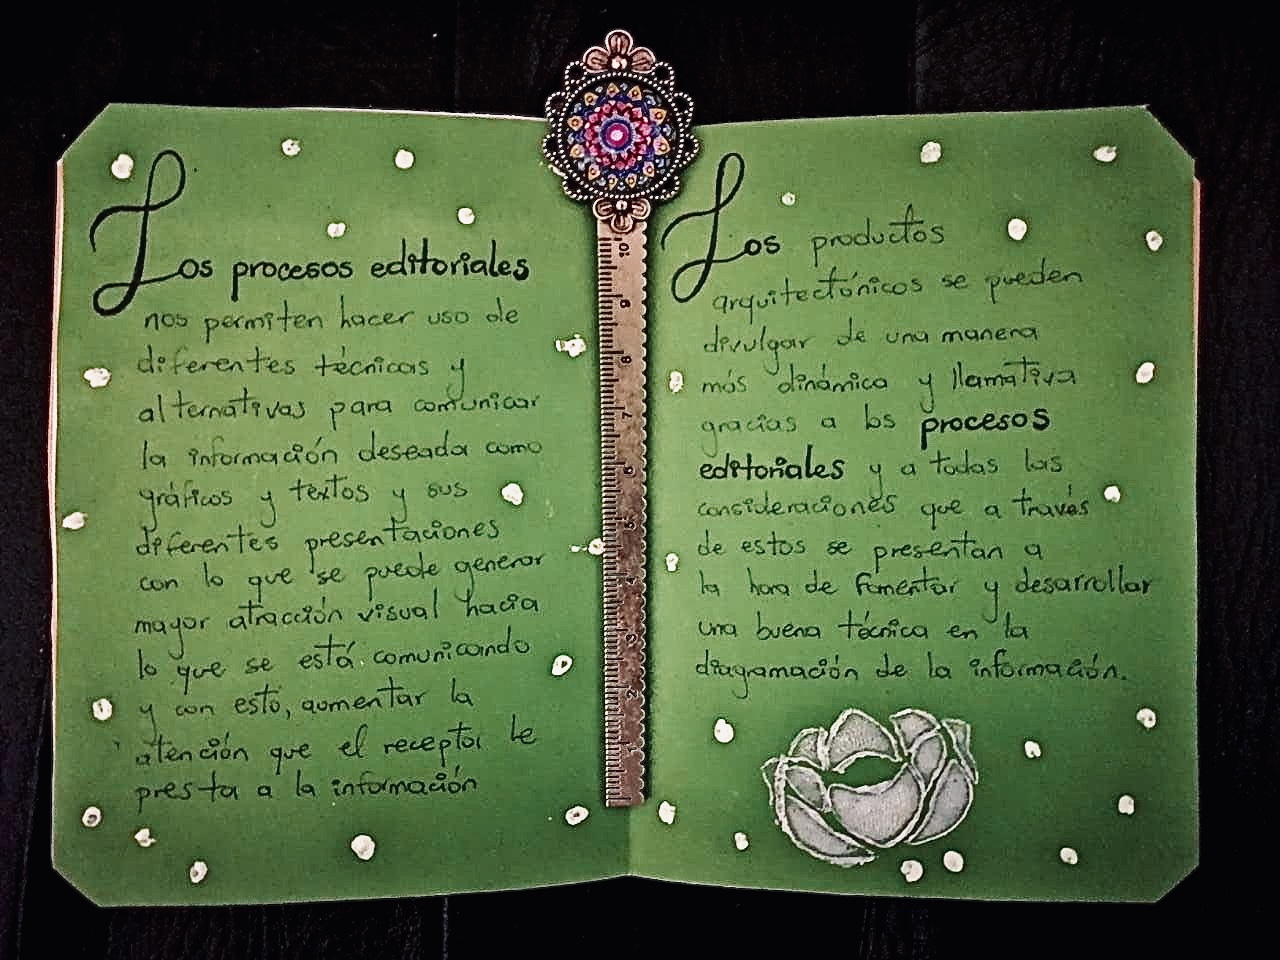 Los procesos editoriales
nos permiten hacer uso de
diferentes técnicas y
alternativas para comunicar
la información deseada como
gráficos y textos y sus
diferentes presentaciones
con lo que se puede generar
mayor atracción visual hacia
lo que se está comunicando
y con esto, aumentar la
atención que el receptor le
presta a la información
10
9
8
7
6
5
4
3
2
1
Los productos
arquitectónicos se pueden
divulgar de una manera
más dinámica y llamativa
gracias a los procesos
editoriales y a todas las
consideraciones que a través
de estos se presentan a
la hora de fomentar y desarrollar
una buena técnica en la
diagamación de la información.